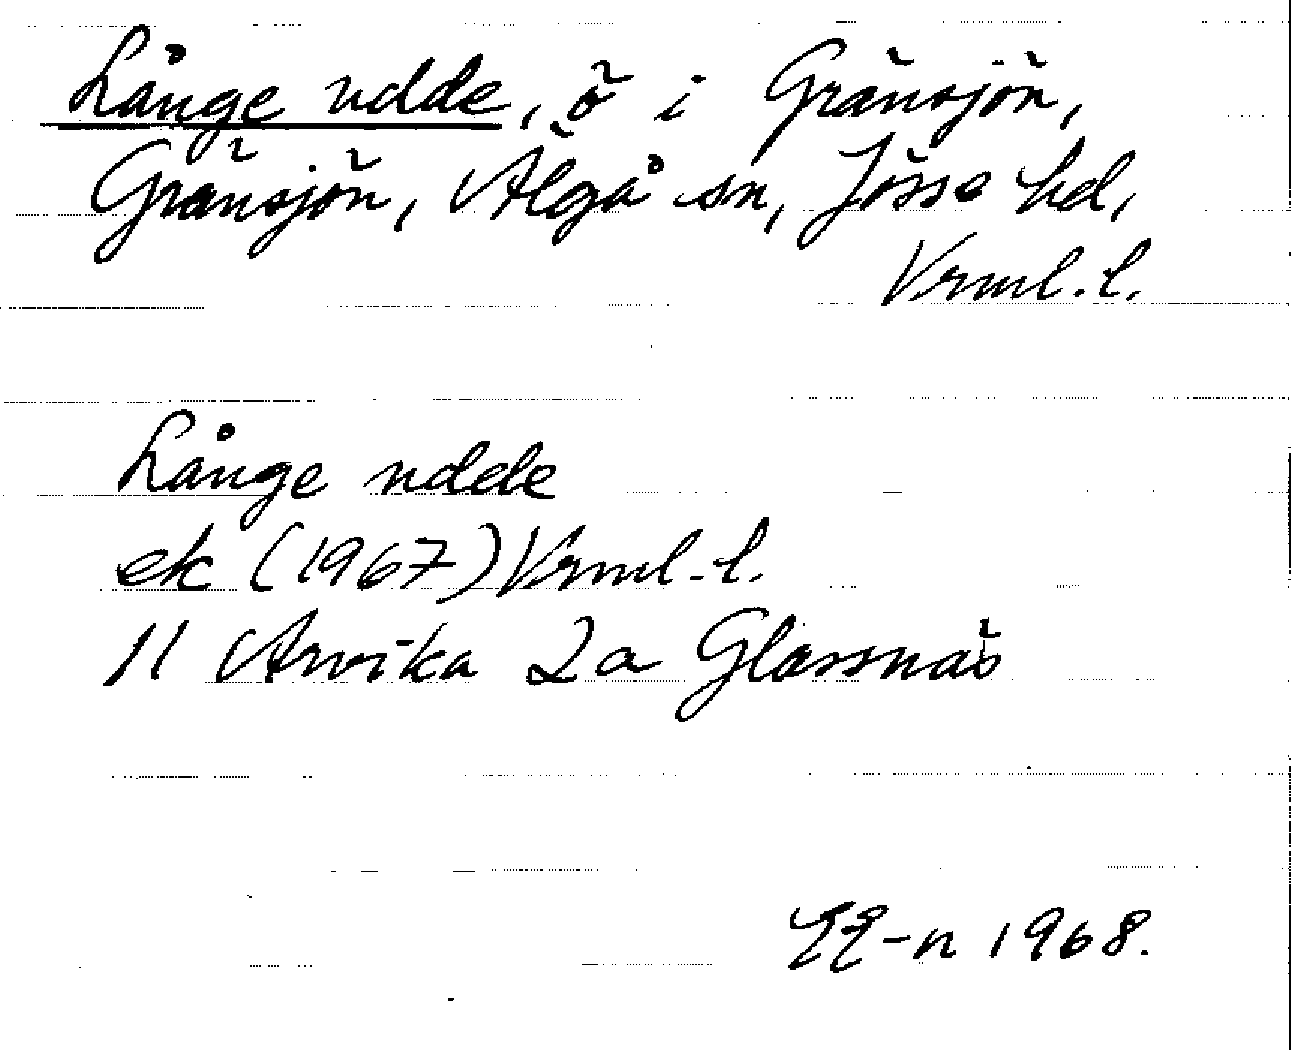 Långe udde, ö i Gränsjön,
Gränsjön, Älgå sn, Jösse hd,
Vrml.l.
Långe udde
ek (1967) Vrml.l.
11 Arvika 2a Glassnäs
1968.